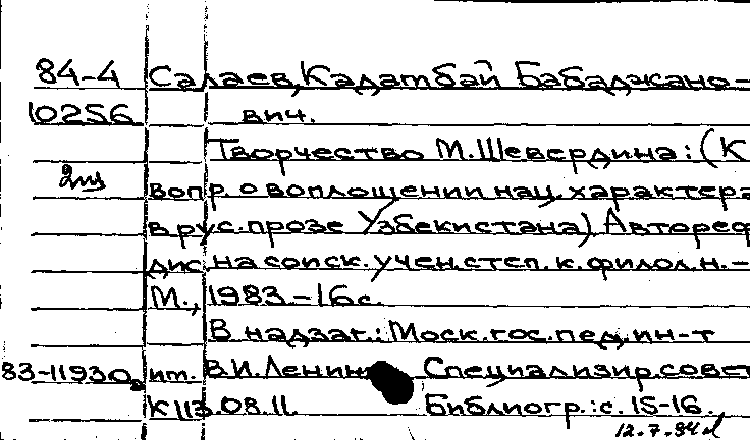 84-4 Салаев, Кадамбай Бабаджано-
10256 вич.
Творчество М. Шевердина: (К
вопр. о воплощении нац. характера
в рус. прозе Узбекистана) Автореф
дис. на соиск. учен. степ. к. филол. н. -
М., 1983. - 16 с.
В надзаг.: Моск. гос. пед. ин-т
83-11930 им. В. И. Ленин Специализир. совет
К 113.08.11. Библиогр.: с. 15-16.
12.7.84